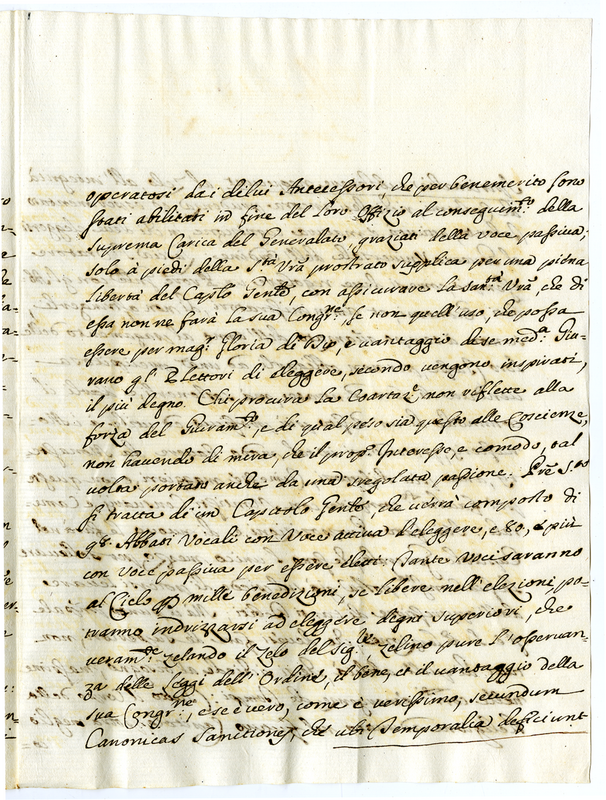 operatosi da i di lui Antecessori, che per benemerito sono
stati abilitati in fine del loro Offizio al conseguim.to della
suprema Carica del Generalato, graziati della voce passiva;
solo à piedi della S.tà Vrã prostrato supplica per una piena
libertà del Caplo Genle, con assicurare la San.tà Vrã, che di
essa non ne farà la sua Congr.ne, se non quell'uso, che possa
essere per mag.r Gloria di Dio, e vantaggio di se med.a Giu-
rano gl' Elettori di eleggere, secondo vengono inspirati,
il più degno. Chi procura la Coartaz.e non riflette alla
forza del Giuram.to, e di qual peso sia questo alle Coscienze,
non havendo di mira, che il prop.o Interesse, e comodo, tal
volta portato anche da una sregolata passione. Prẽ S.to
si tratta di un Capitolo Genle, che verrà composto di
98. Abbati Vocali con Voce attiva d'eleggere, e 80, e più
con voce passiva per essere eletti. Tante Voci saranno
al Cielo p mille benedizioni, se libere nell'elezioni, po-
tranno indrizzarsi ad eleggere degni superiori, che
veram.te zelando il Zelo del Sig.re zelino pure l'osservan-
za delle Leggi dell'Ordine, il bene, et il vantaggio della
sua Congr.ne, e se è vero, come è verissimo, secundum
Canonicas Sanctiones, che ubi Temporalia deficiunt